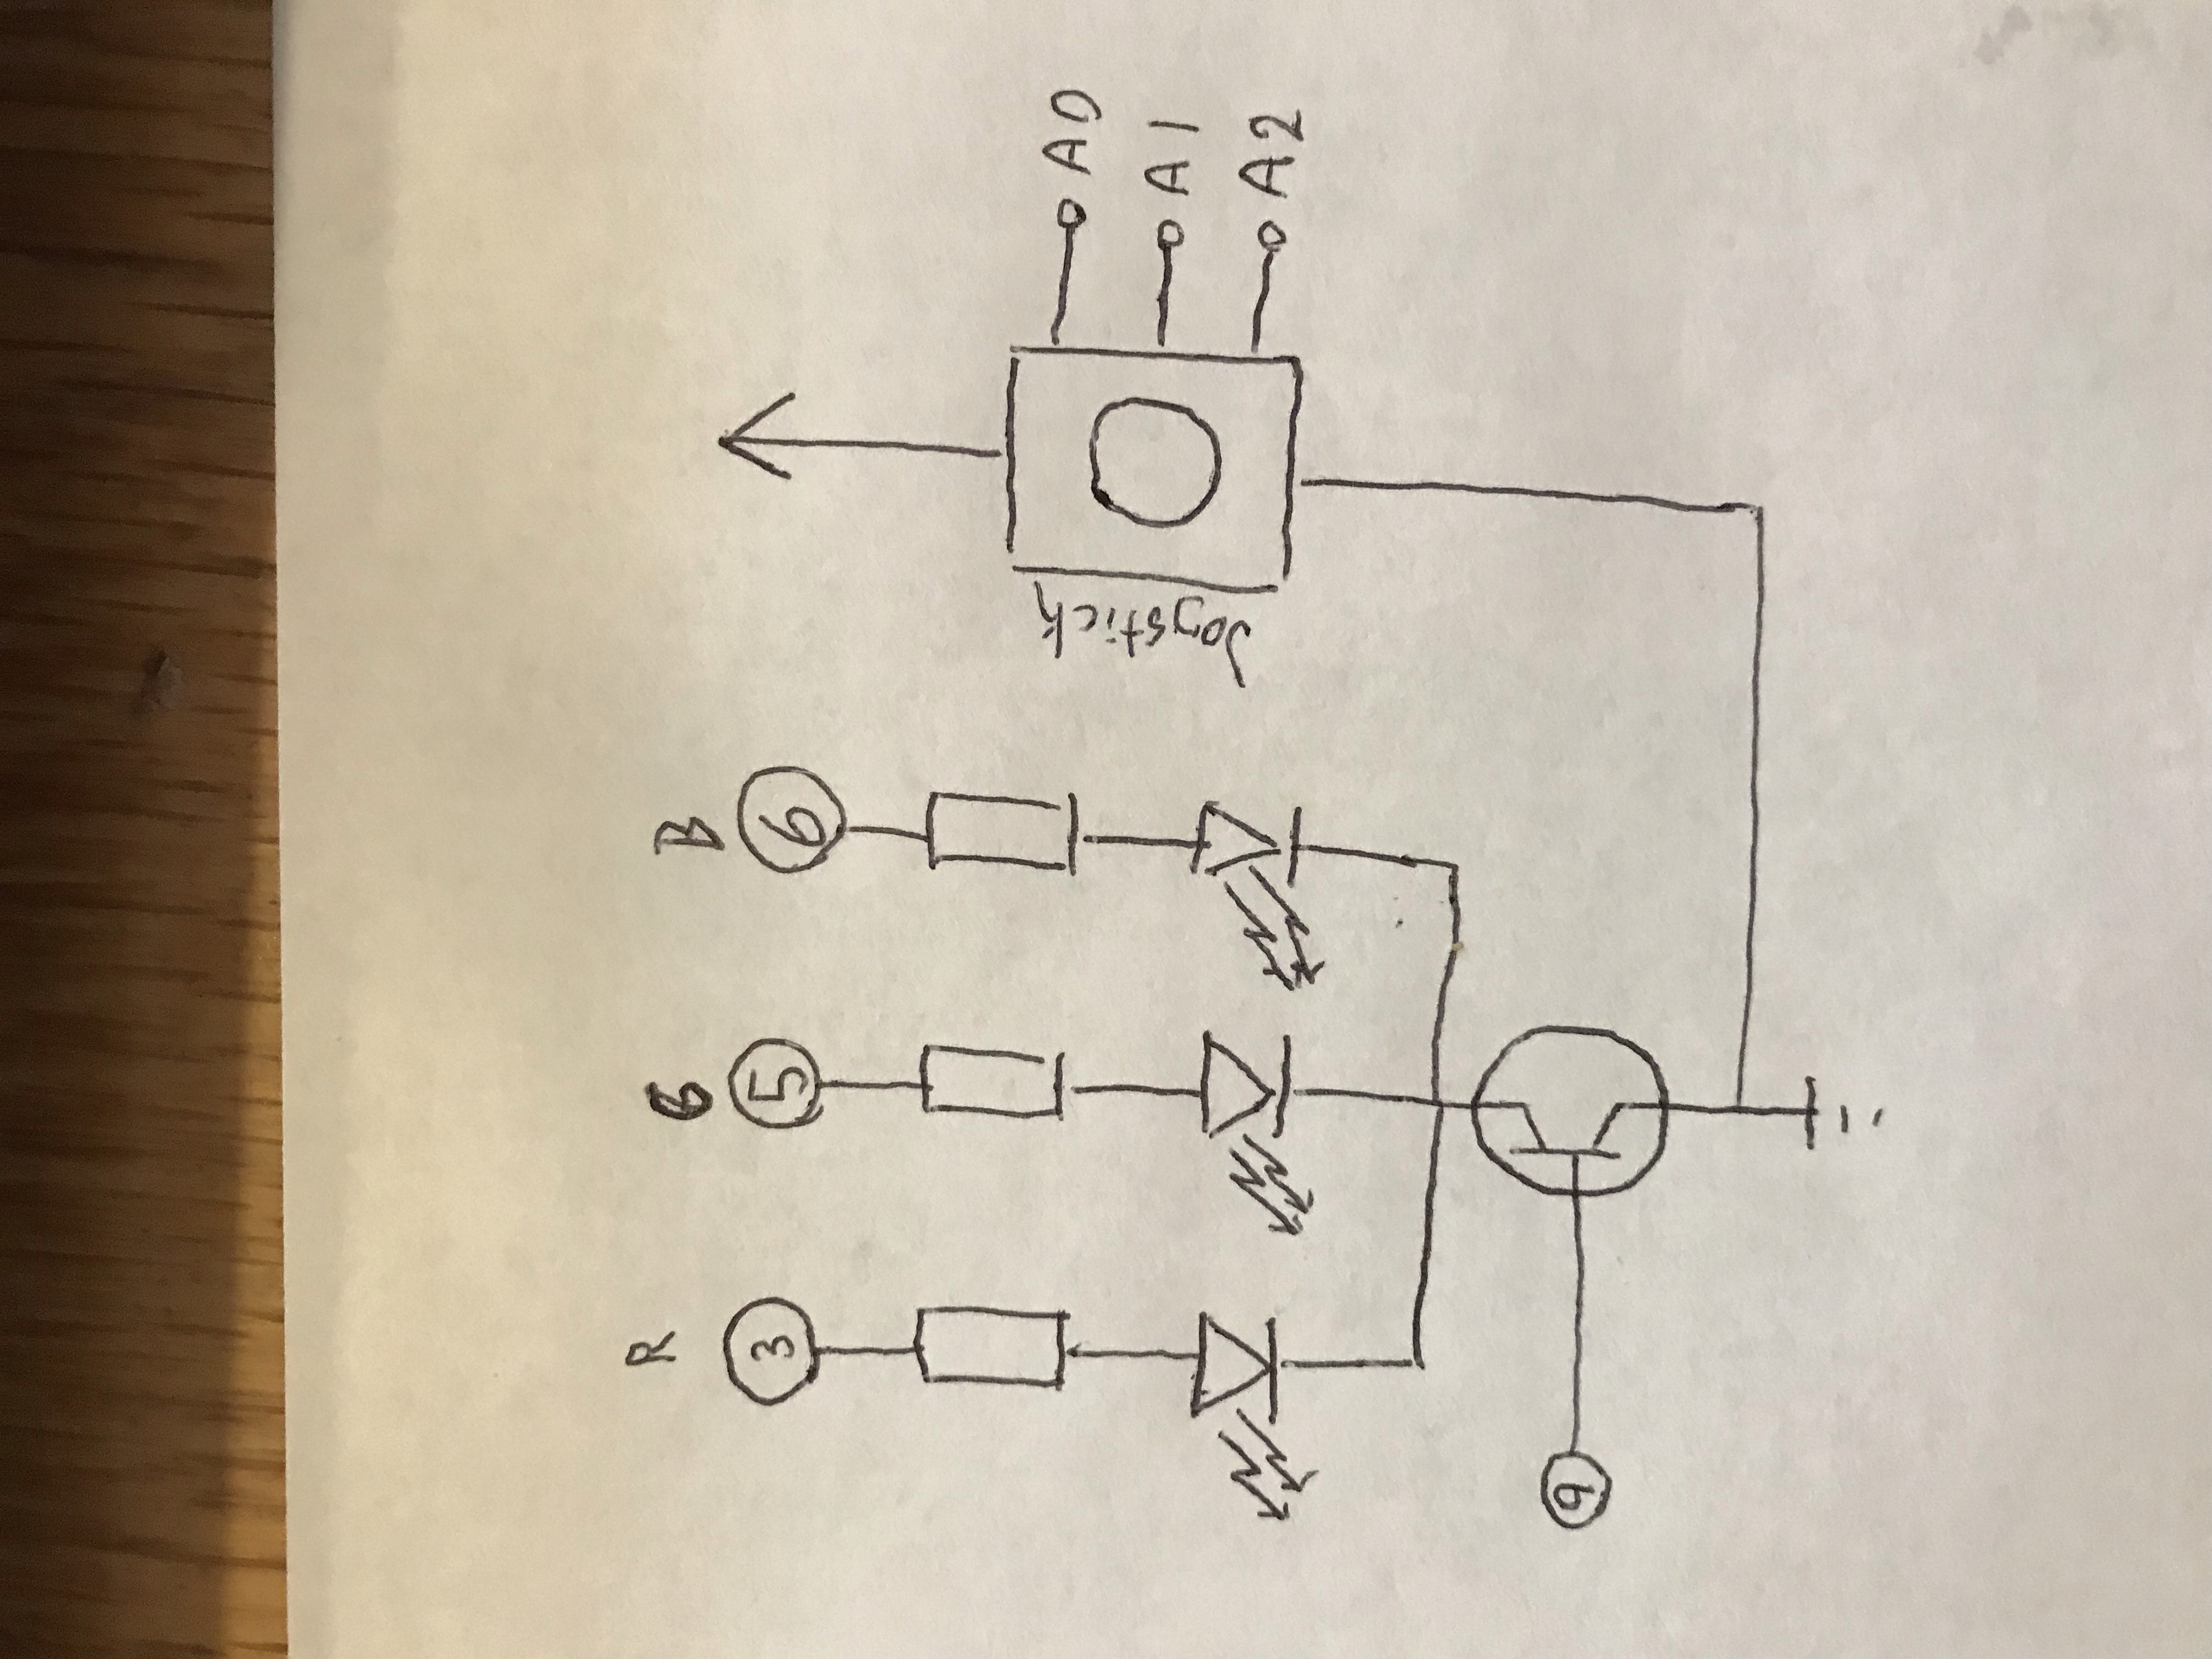 R G B
3 5 6
Joystick
A0
A1
A2
9